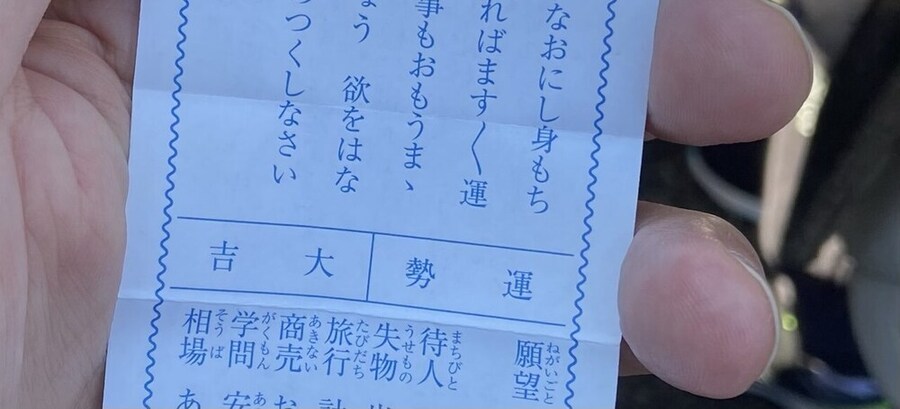 なおにし身もち
ればます〱運
事もおもうまゝ
ょう 欲をはな
つくしなさい
運勢 大吉
願望 ねがいごと
待人 まちびと
失物 うせもの
旅行 たびだち
商売 あきない
学問 がくもん
相場 そうば
計
お
安
あ